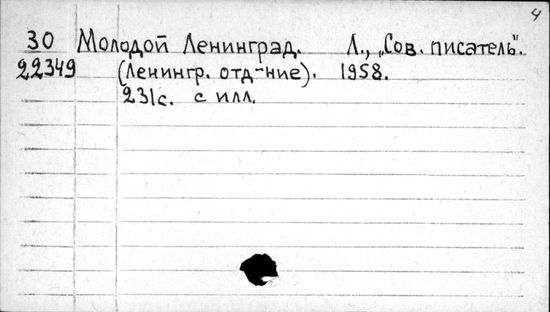 4
30 Молодой Ленинград. Л., „Сов. писатель".
22349 (Ленингр. отд-ние). 1958.
231с. с илл.